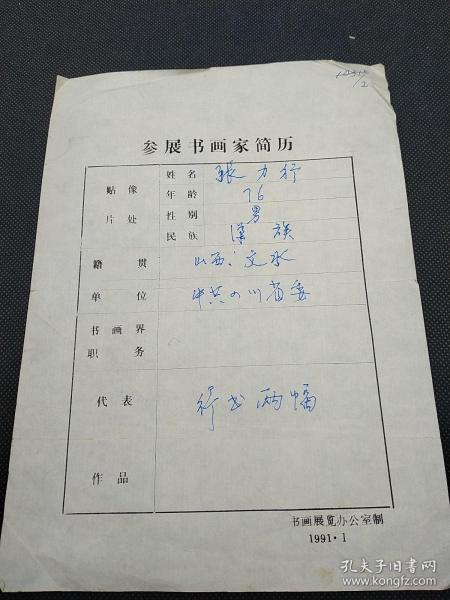 参展书画家简历
贴像片处
姓名 張力行
年龄 76
性别 男
民族 漢族
籍贯 山西文水
单位 中共四川省委
书画界职务
代表作品 行书两幅
书画展览办公室制
1991·1
孔夫子旧书网
www.kongfz.com